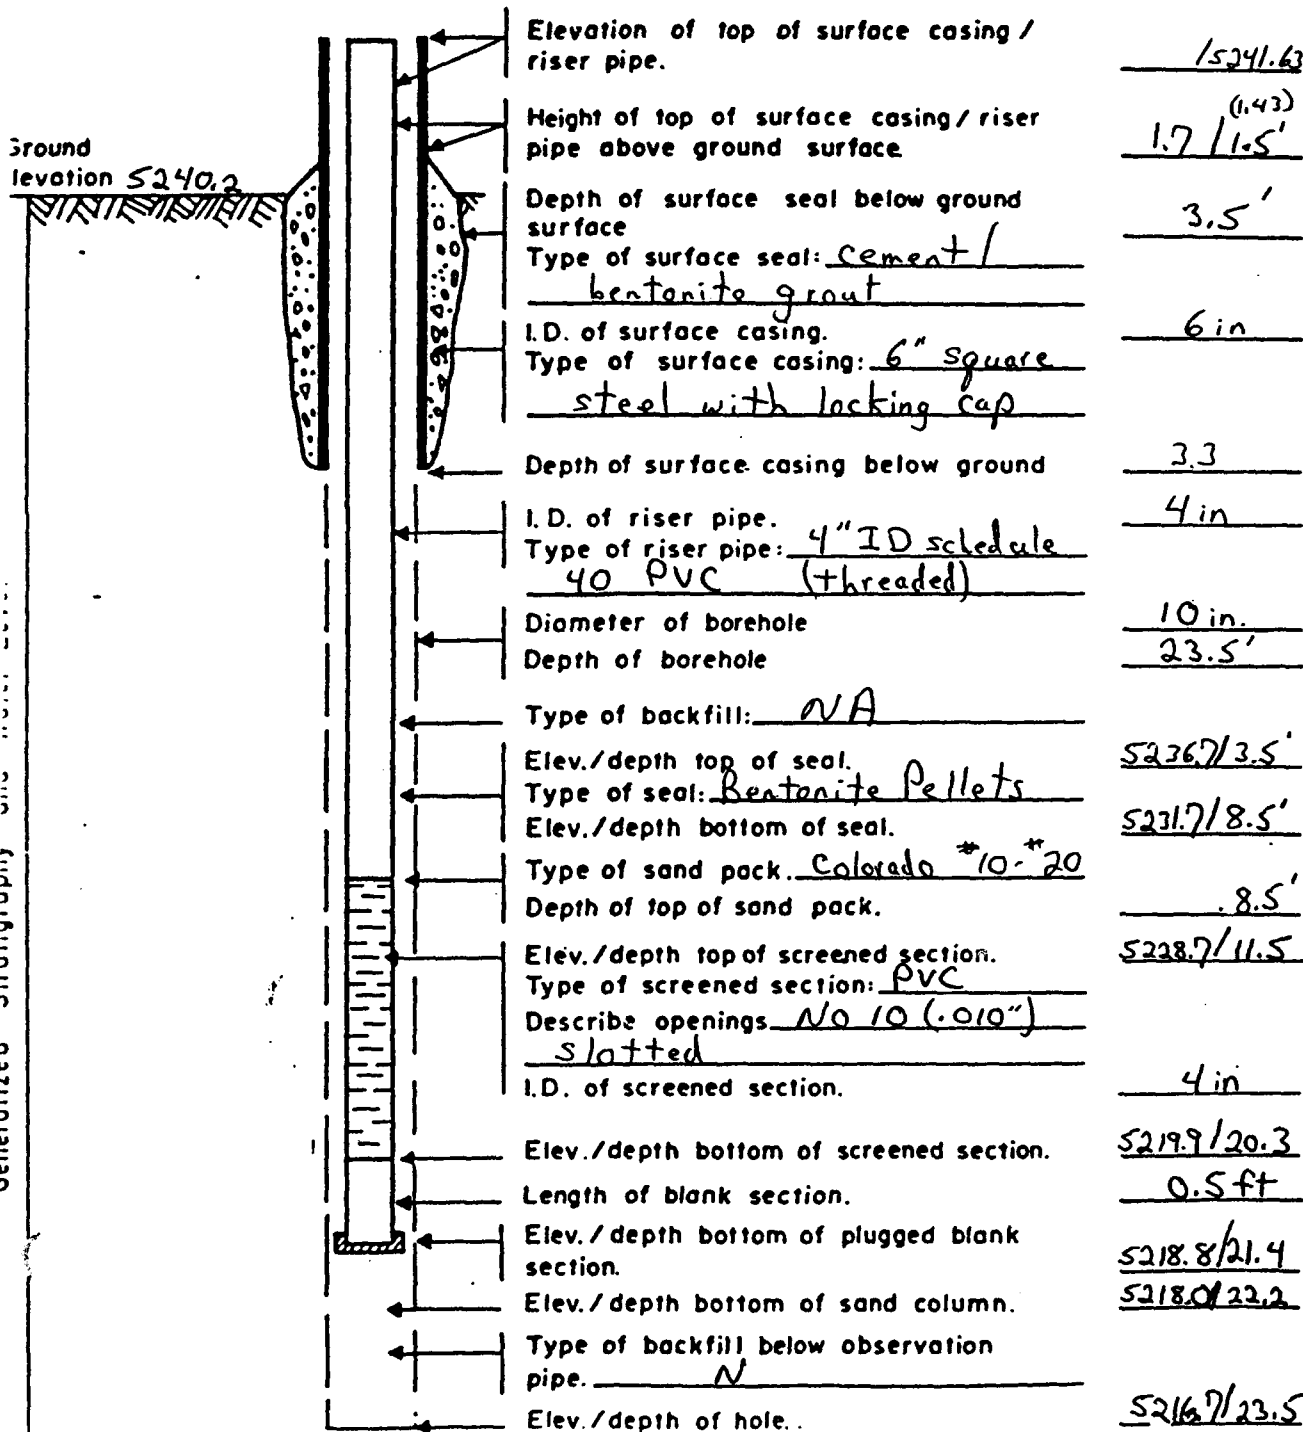 Elevation of top of surface casing /
riser pipe.
/5241.63
Height of top of surface casing / riser
pipe above ground surface
(1.43)
1.7 / 1.5'
Ground
levation 5240.2
Depth of surface seal below ground
surface
3.5'
Type of surface seal: cement /
bentonite grout
I.D. of surface casing.
6 in
Type of surface casing: 6" square
steel with locking cap
Depth of surface casing below ground
3.3
I.D. of riser pipe.
4 in
Type of riser pipe: 4" ID schedule
40 PVC (threaded)
Diameter of borehole
10 in.
Depth of borehole
23.5'
Type of backfill: NA
Elev./depth top of seal.
5236.7/3.5'
Type of seal: Bentonite Pellets
Elev./depth bottom of seal.
5231.7/8.5'
Type of sand pack. Colorado #10-#20
Depth of top of sand pack.
.8.5'
Elev./depth top of screened section.
5228.7/11.5
Type of screened section: PVC
Describe openings No 10 (.010")
slotted
I.D. of screened section.
4 in
Elev./depth bottom of screened section.
5219.9/20.3
Length of blank section.
0.5 ft
Elev./depth bottom of plugged blank
section.
5218.8/21.4
Elev./depth bottom of sand column.
5218.0/22.2
Type of backfill below observation
pipe. N
Elev./depth of hole..
5216.7/23.5
Generalized stratigraphy and